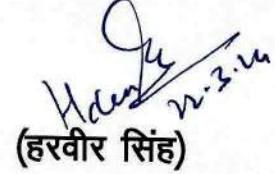 22.3.24
(हरवीर सिंह)